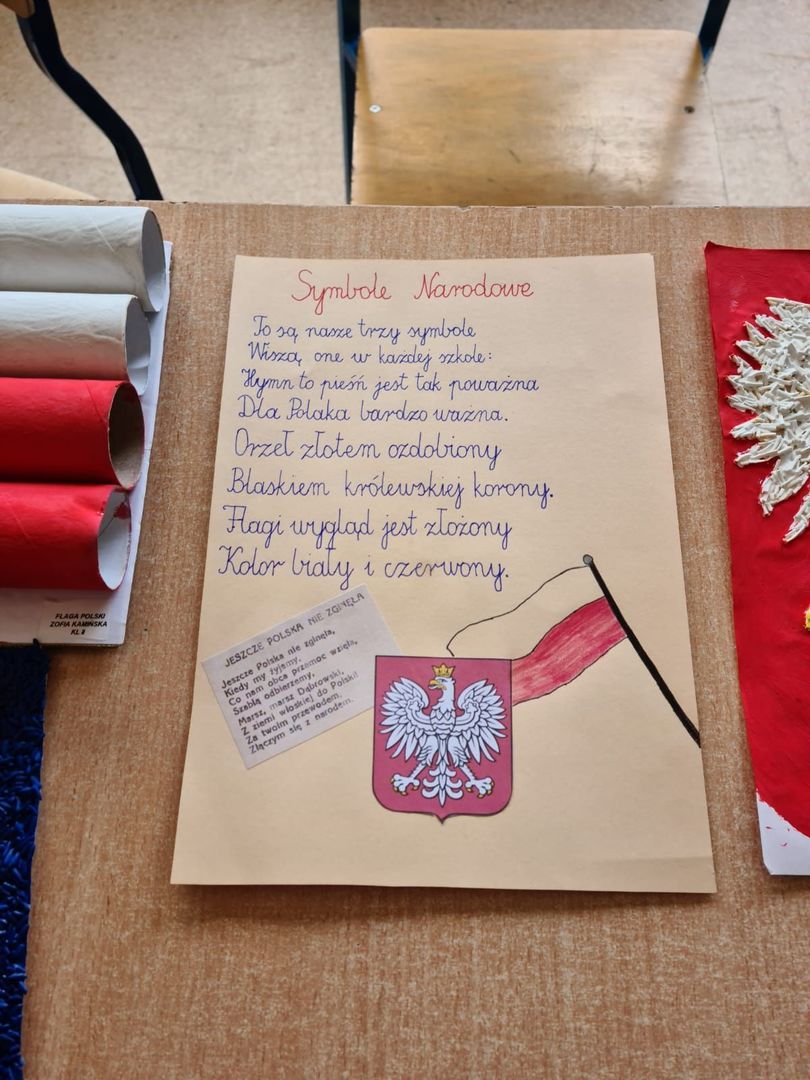 Symbole Narodowe
To są nasze trzy symbole
Wiszą one w każdej szkole:
Hymn to pieśń jest tak poważna
Dla Polaka bardzo ważna.
Orzeł złotem ozdobiony
Blaskiem królewskiej korony.
Flagi wygląd jest złożony
Kolor biały i czerwony.
JESZCZE POLSKA NIE ZGINĘŁA
Jeszcze Polska nie zginęła,
Kiedy my żyjemy,
Co nam obca przemoc wzięła,
Szablą odbierzemy.
Marsz, marsz Dąbrowski,
Z ziemi włoskiej do Polski!
Za twoim przewodem,
Złączym się z narodem.
FLAGA POLSKI
ZOFIA KAMIŃSKA
KL II